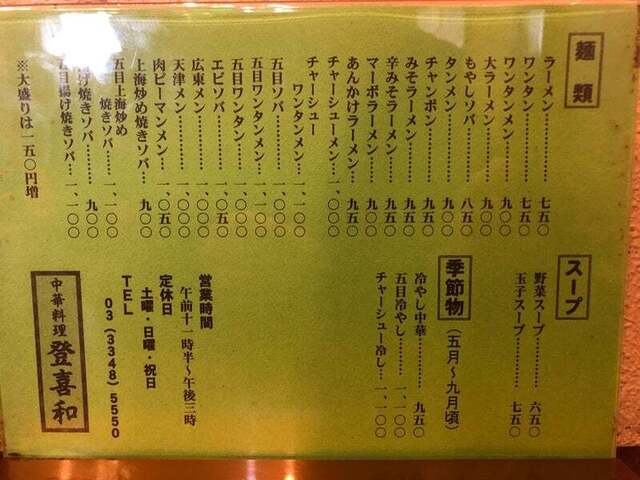 麺類
ラーメン………七五〇
ワンタン………七五〇
ワンタンメン……九〇〇
大ラーメン………九〇〇
もやしソバ………八五〇
タンメン…………九〇〇
チャンポン………九五〇
みそラーメン……九五〇
辛みそラーメン…九五〇
マーボラーメン…九〇〇
あんかけラーメン…九五〇
チャーシューメン…一、〇〇〇
チャーシュー
ワンタンメン…一、一〇〇
五目ソバ…………一、〇〇〇
五目ワンタンメン…一、一〇〇
五目ワンタン……一、〇〇〇
エビソバ…………一、〇五〇
広東メン…………一、〇〇〇
天津メン…………一、〇〇〇
肉ピーマンメン…一、〇五〇
上海炒め焼きソバ…九〇〇
五目上海炒め
焼きソバ…一、一〇〇
揚げ焼きソバ……九〇〇
五目揚げ焼きソバ…一、一〇〇
※大盛りは一五〇円増
スープ
野菜スープ…………六五〇
玉子スープ…………七五〇
季節物（五月〜九月頃）
冷やし中華…………九五〇
五目冷やし………一、一〇〇
チャーシュー冷し…一、一〇〇
営業時間
午前十一時半〜午後三時
定休日
土曜・日曜・祝日
TEL
03(3348)5550
中華料理 登喜和